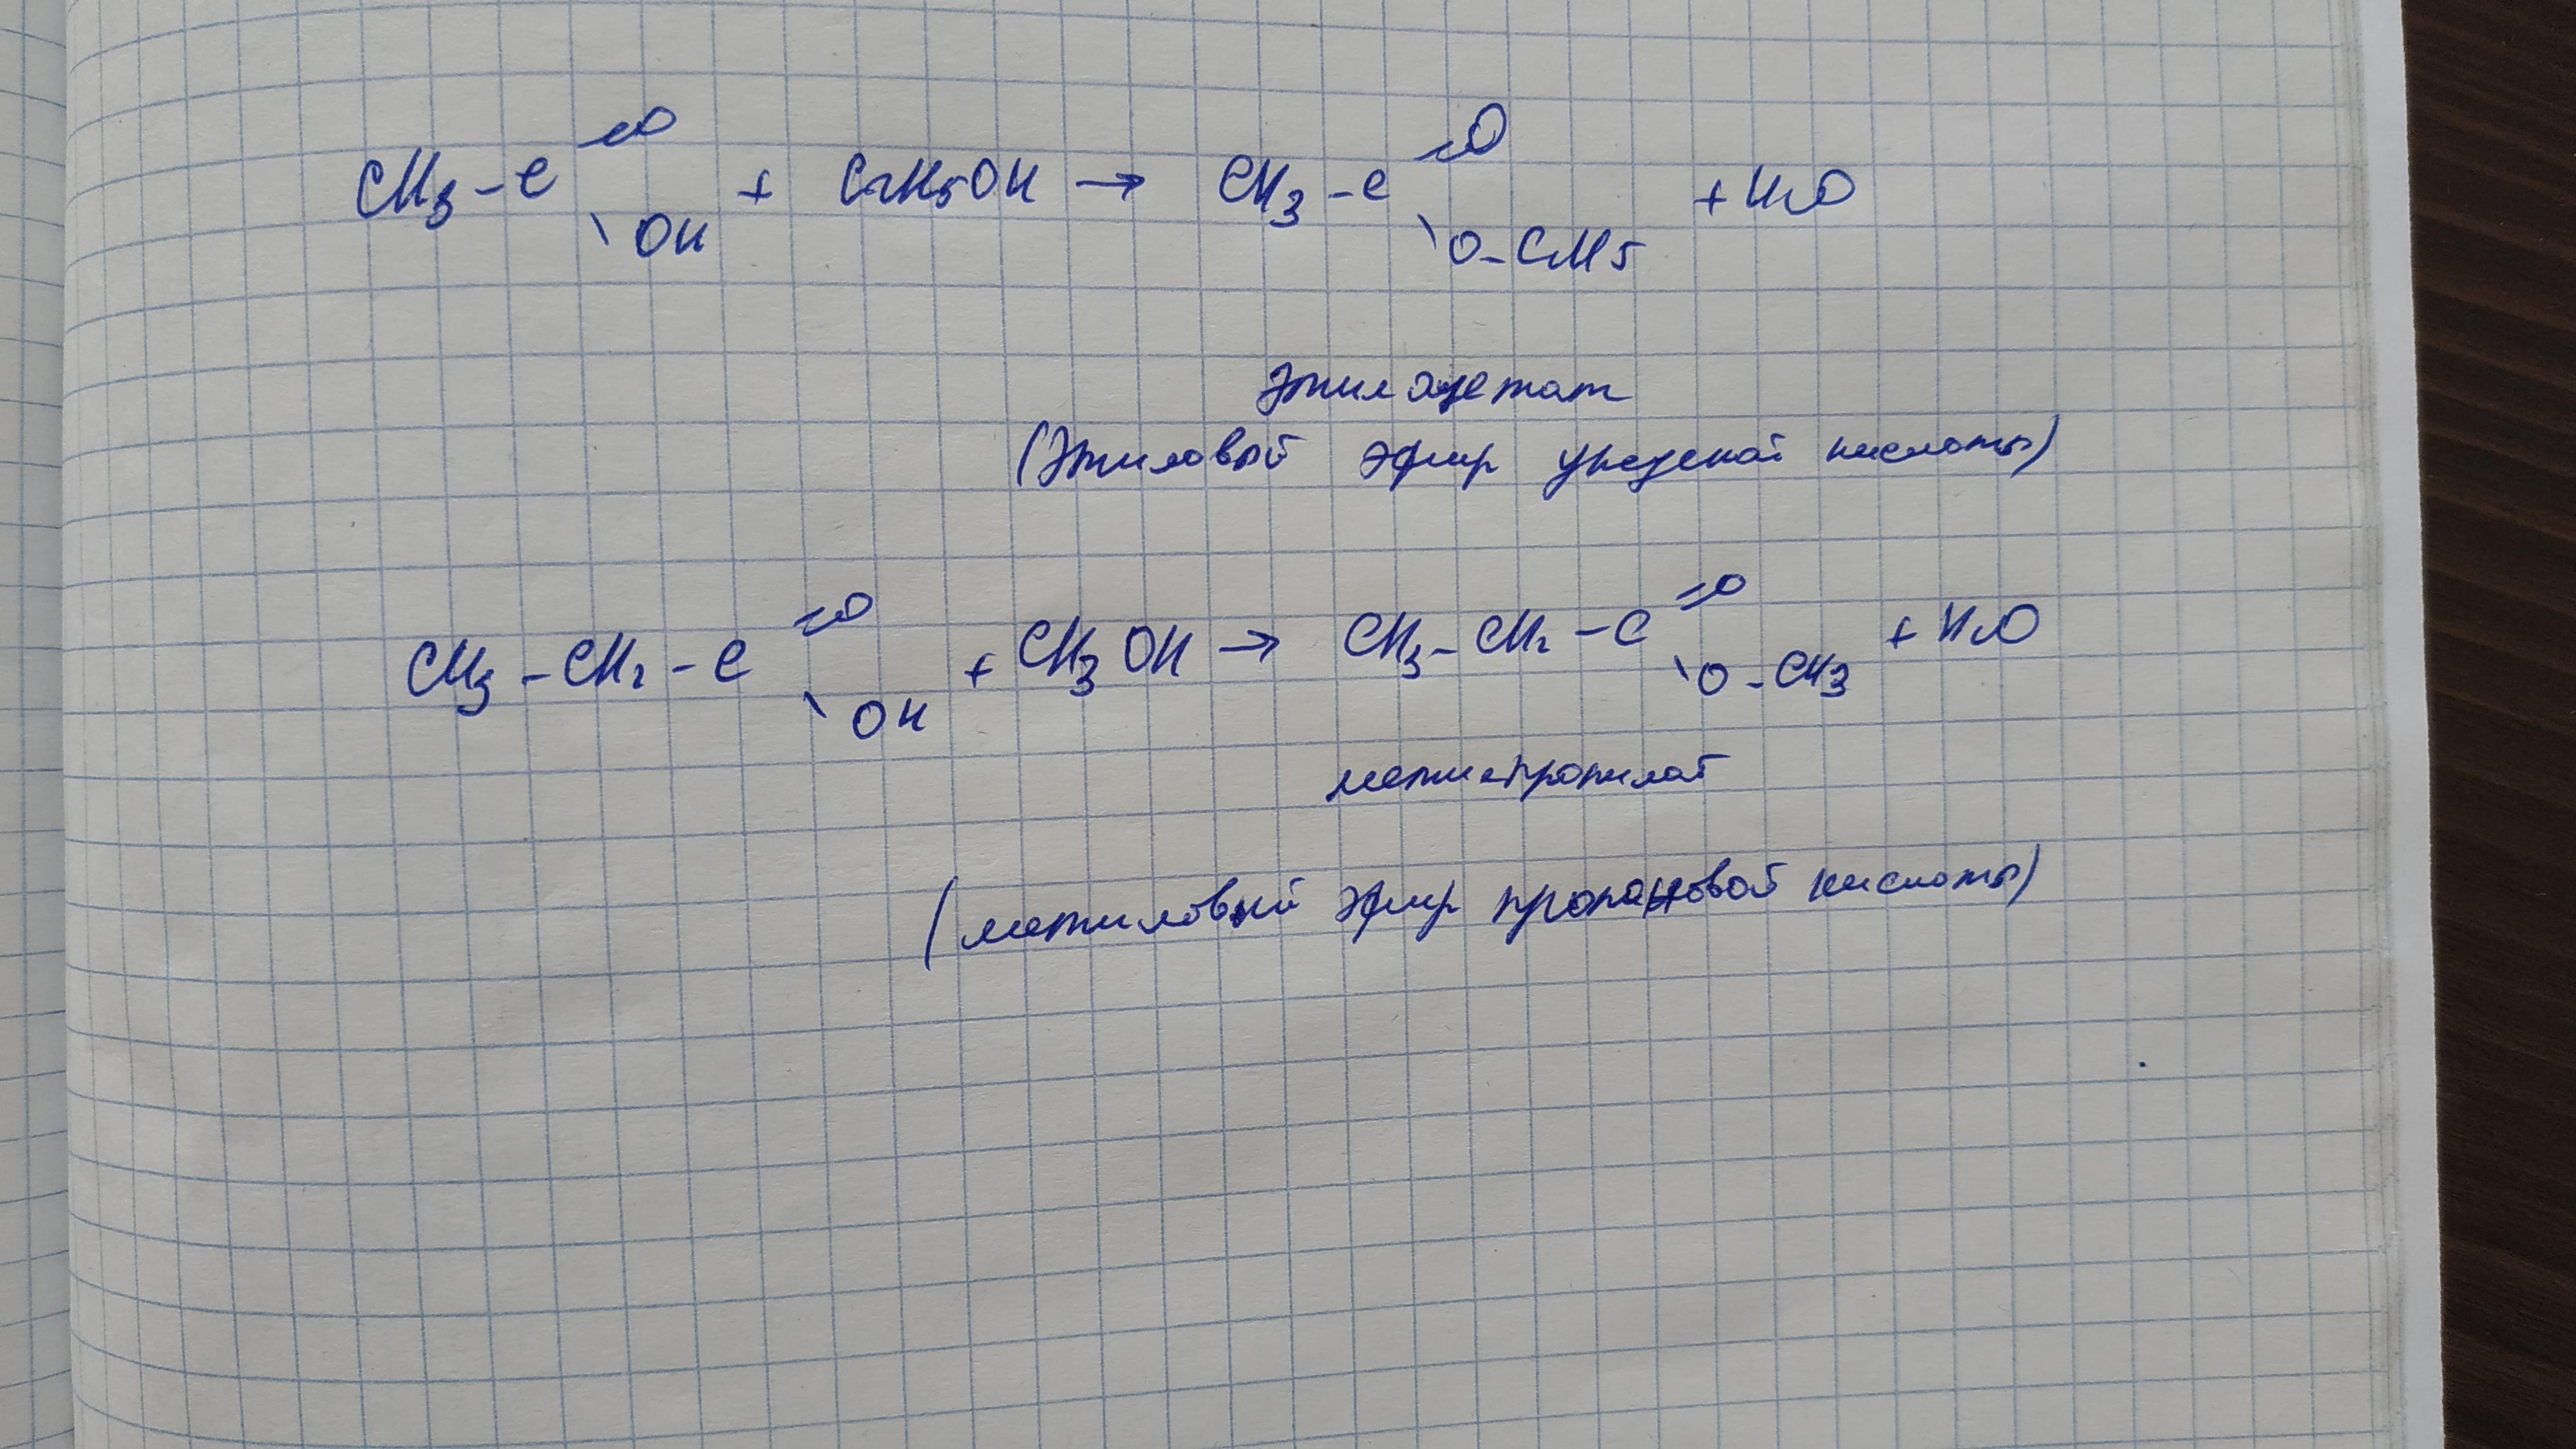 CH3 - C =O \ OH + C2H5OH → CH3 - C =O \ O - C2H5 + H2O
Этилацетат
(Этиловый эфир уксусной кислоты)
CH3 - CH2 - C =O \ OH + CH3OH → CH3 - CH2 - C =O \ O - CH3 + H2O
метилпропилат
(метиловый эфир пропановой кислоты)